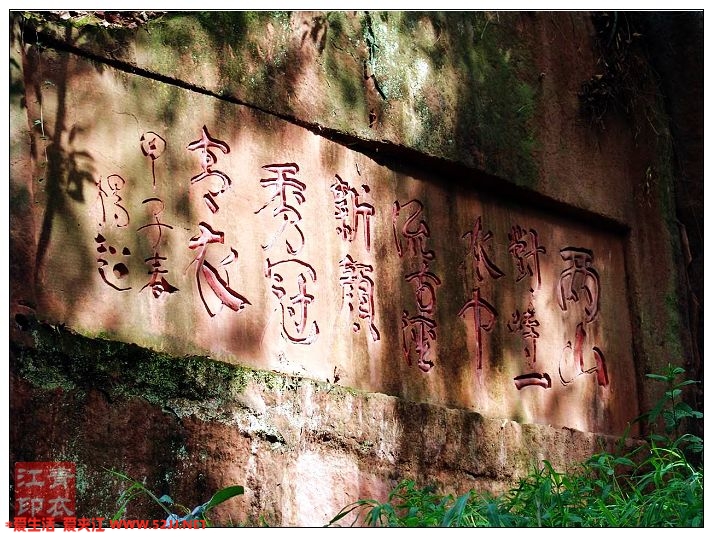 两山
对峙一
水中
流古
新颜
秀冠
青衣
甲子春
杨超
青衣
江印
*爱生活 爱夹江